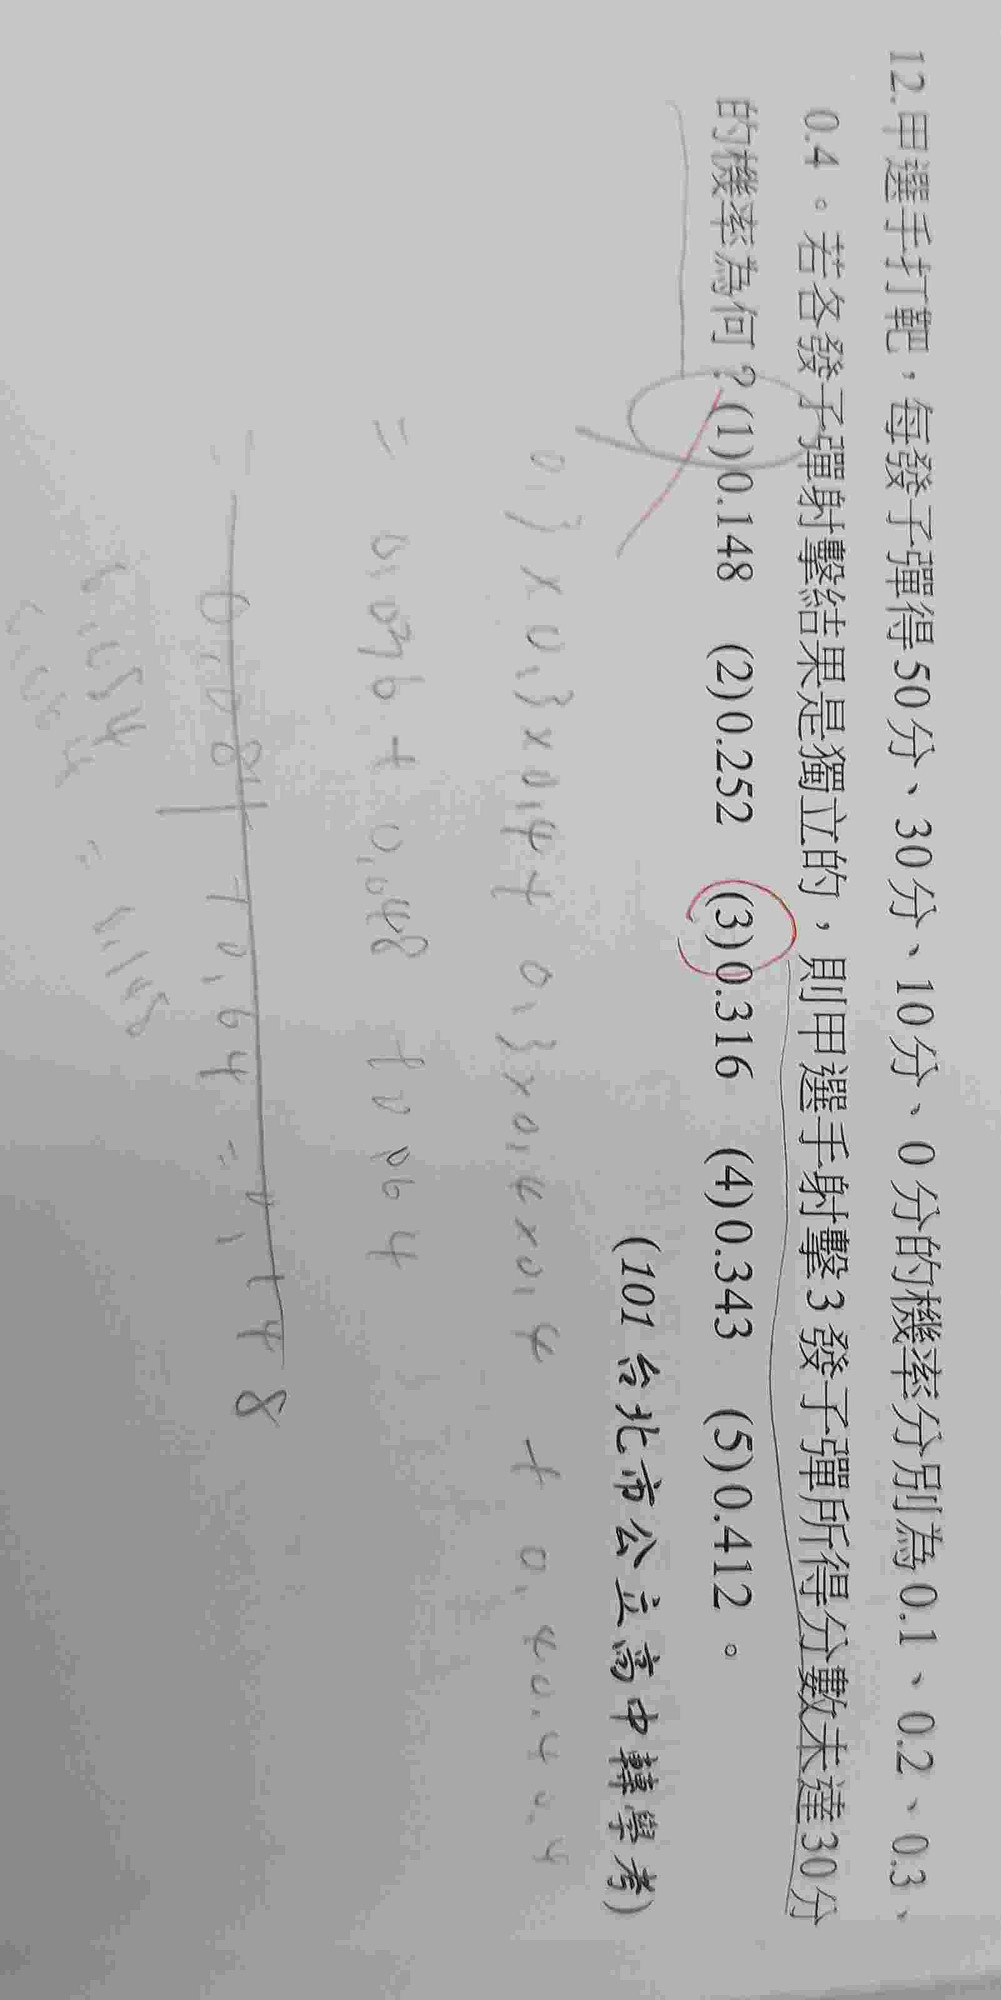 12.甲選手打靶，每發子彈得50分、30分、10分、0分的機率分別為0.1、0.2、0.3、
0.4。若各發子彈射擊結果是獨立的，則甲選手射擊3發子彈所得分數未達30分
的機率為何？(1)0.148 (2)0.252 (3)0.316 (4)0.343 (5)0.412。
(101台北市公立高中轉學考)
0.3×0.3×0.4+0.3×0.4×0.4+0.4 0.4 0.4
=0.036+0.048+0.064
0.084+0.64=0.148